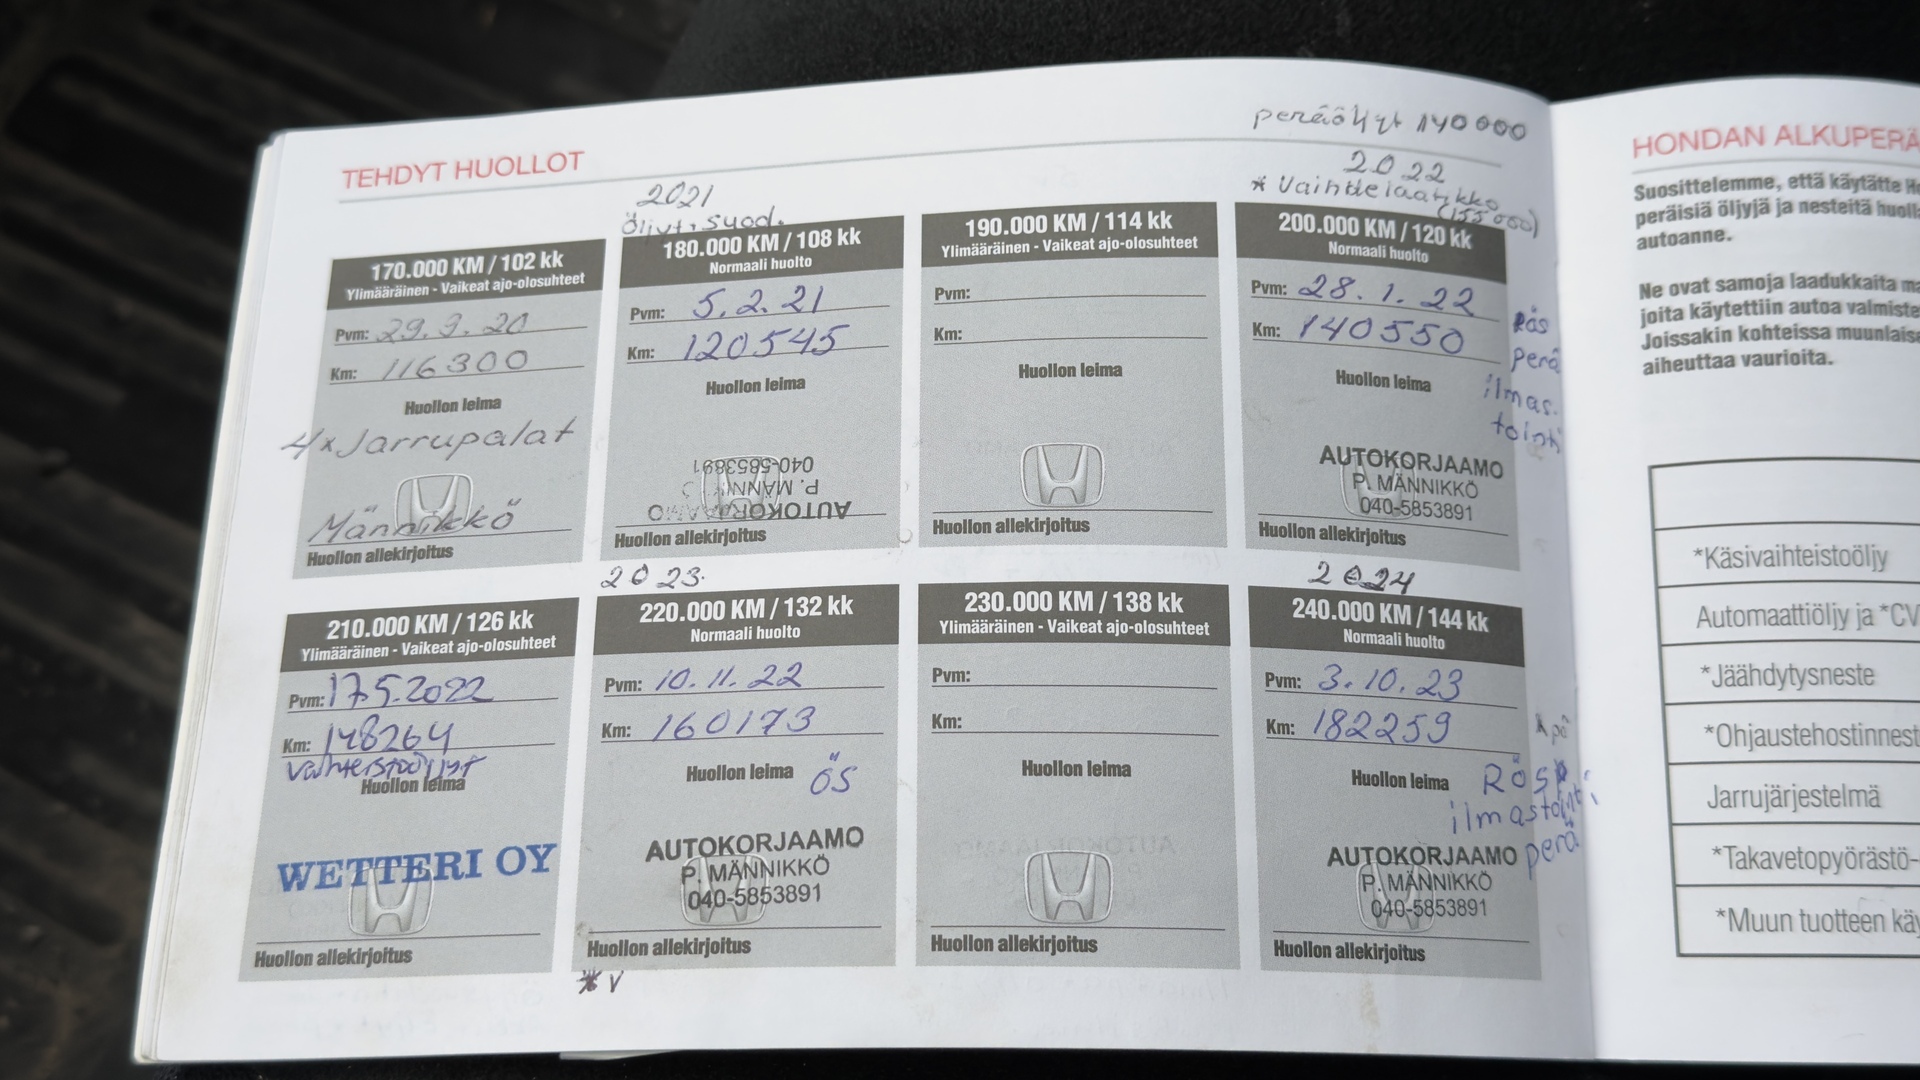 TEHDYT HUOLLOT
peräöljyt 140 000
2022
* Vaihdelaatikko
(155 000)
2021
Öljyt + suod.
170.000 KM / 102 kk
Ylimääräinen - Vaikeat ajo-olosuhteet
Pvm: 29.3.20
Km: 116300
Huollon leima
4x Jarrupalat
Männikkö
Huollon allekirjoitus
180.000 KM / 108 kk
Normaali huolto
Pvm: 5.2.21
Km: 120545
Huollon leima
AUTOKORJAAMO
P. MÄNNIKKÖ
040-5853891
Huollon allekirjoitus
190.000 KM / 114 kk
Ylimääräinen - Vaikeat ajo-olosuhteet
Pvm:
Km:
Huollon leima
Huollon allekirjoitus
200.000 KM / 120 kk
Normaali huolto
Pvm: 28.1.22
Km: 140550
Huollon leima
perä
ilmas-
tointi
AUTOKORJAAMO
P. MÄNNIKKÖ
040-5853891
Huollon allekirjoitus
210.000 KM / 126 kk
Ylimääräinen - Vaikeat ajo-olosuhteet
Pvm: 17.5.2022
Km: 148264
vaihteistoöljyt
Huollon leima
WETTERI OY
Huollon allekirjoitus
2023
220.000 KM / 132 kk
Normaali huolto
Pvm: 10.11.22
Km: 160173
Huollon leima ÖS
AUTOKORJAAMO
P. MÄNNIKKÖ
040-5853891
Huollon allekirjoitus
* V
230.000 KM / 138 kk
Ylimääräinen - Vaikeat ajo-olosuhteet
Pvm:
Km:
Huollon leima
Huollon allekirjoitus
2024
240.000 KM / 144 kk
Normaali huolto
Pvm: 3.10.23
Km: 182259
Huollon leima
ilmastointi
perä
AUTOKORJAAMO
P. MÄNNIKKÖ
040-5853891
Huollon allekirjoitus
HONDAN ALKUPERÄ
Suosittelemme, että käytätte
peräisiä öljyjä ja nesteitä
autoanne.
Ne ovat samoja laadukkaita
joita käytettiin autoa
Joissakin kohteissa
aiheuttaa vaurioita.
*Käsivaihteistoöljy
Automaattiöljy ja *CV
*Jäähdytysneste
*Ohjaustehostinnest
Jarrujärjestelmä
*Takavetopyörästö-
*Muun tuotteen